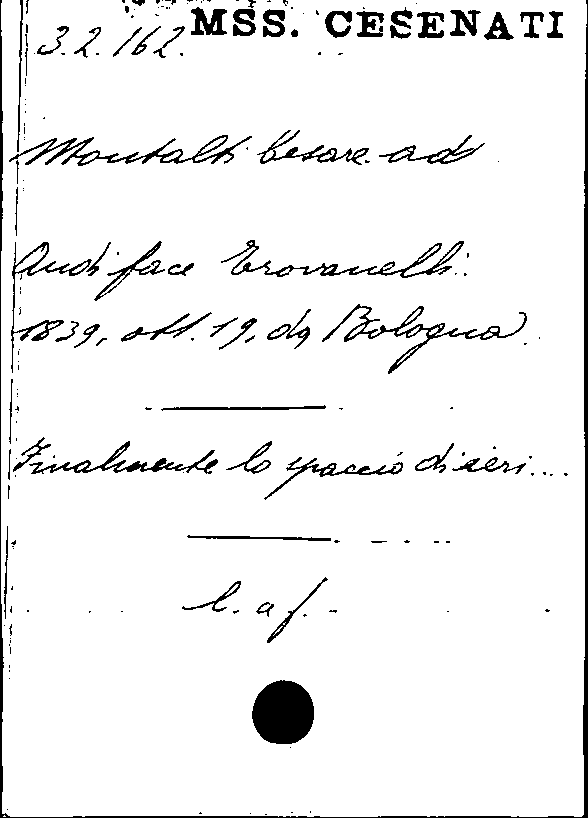 MSS. CESENATI
3.2.162.
Montalti Cesare ad
Audiface Trovanelli.
1839, ott. 19, da Bologna
Finalmente lo spaccio di ieri...
l. a f.